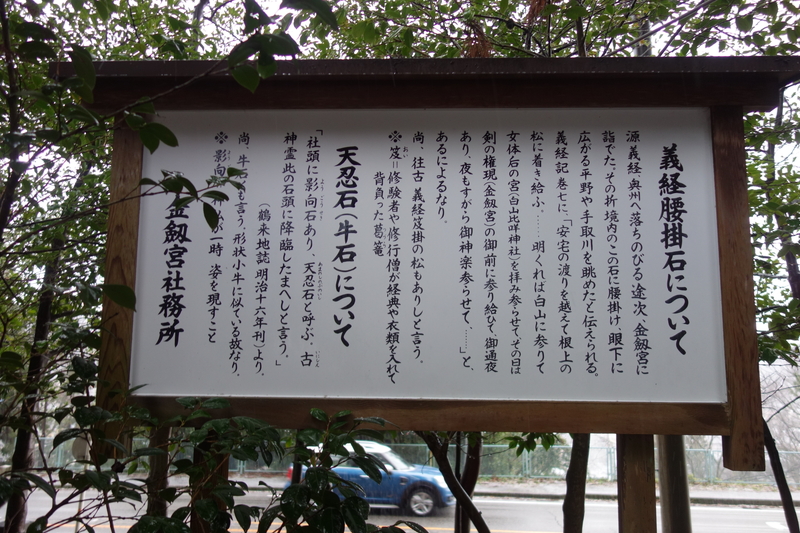 義経腰掛石について
源義経、奥州へ落ちのびる途次、金劔宮に
詣でた。その折境内のこの石に腰掛け、眼下に
広がる平野や手取川を眺めたと伝えられる。
義経記巻七に、「安宅の渡りを越えて根上の
松に着き給ふ。……明くれは白山に参りて
女体后の宮(白山比咩神社)を拝み参らせて、その日は
剣の権現(金劔宮)の御前に参り給て、御通夜
あり、夜もすがら御神楽参らせて、……」と、
あるによるなり。
尚、往古 義経笈掛の松もありしと言う。
※笈=修験者や修行僧が経典や衣類を入れて
背負った葛篭
天忍石(牛石)について
「社頭に影向石あり、天忍石と呼ぶ、古
神霊此の石頭に降臨したまへしと言う。」
(鶴来地誌 明治十六年刊)より、
尚、牛石とも言う。形状小牛に似ている故なり。
※影向 一時 姿を現すこと
金劔宮社務所